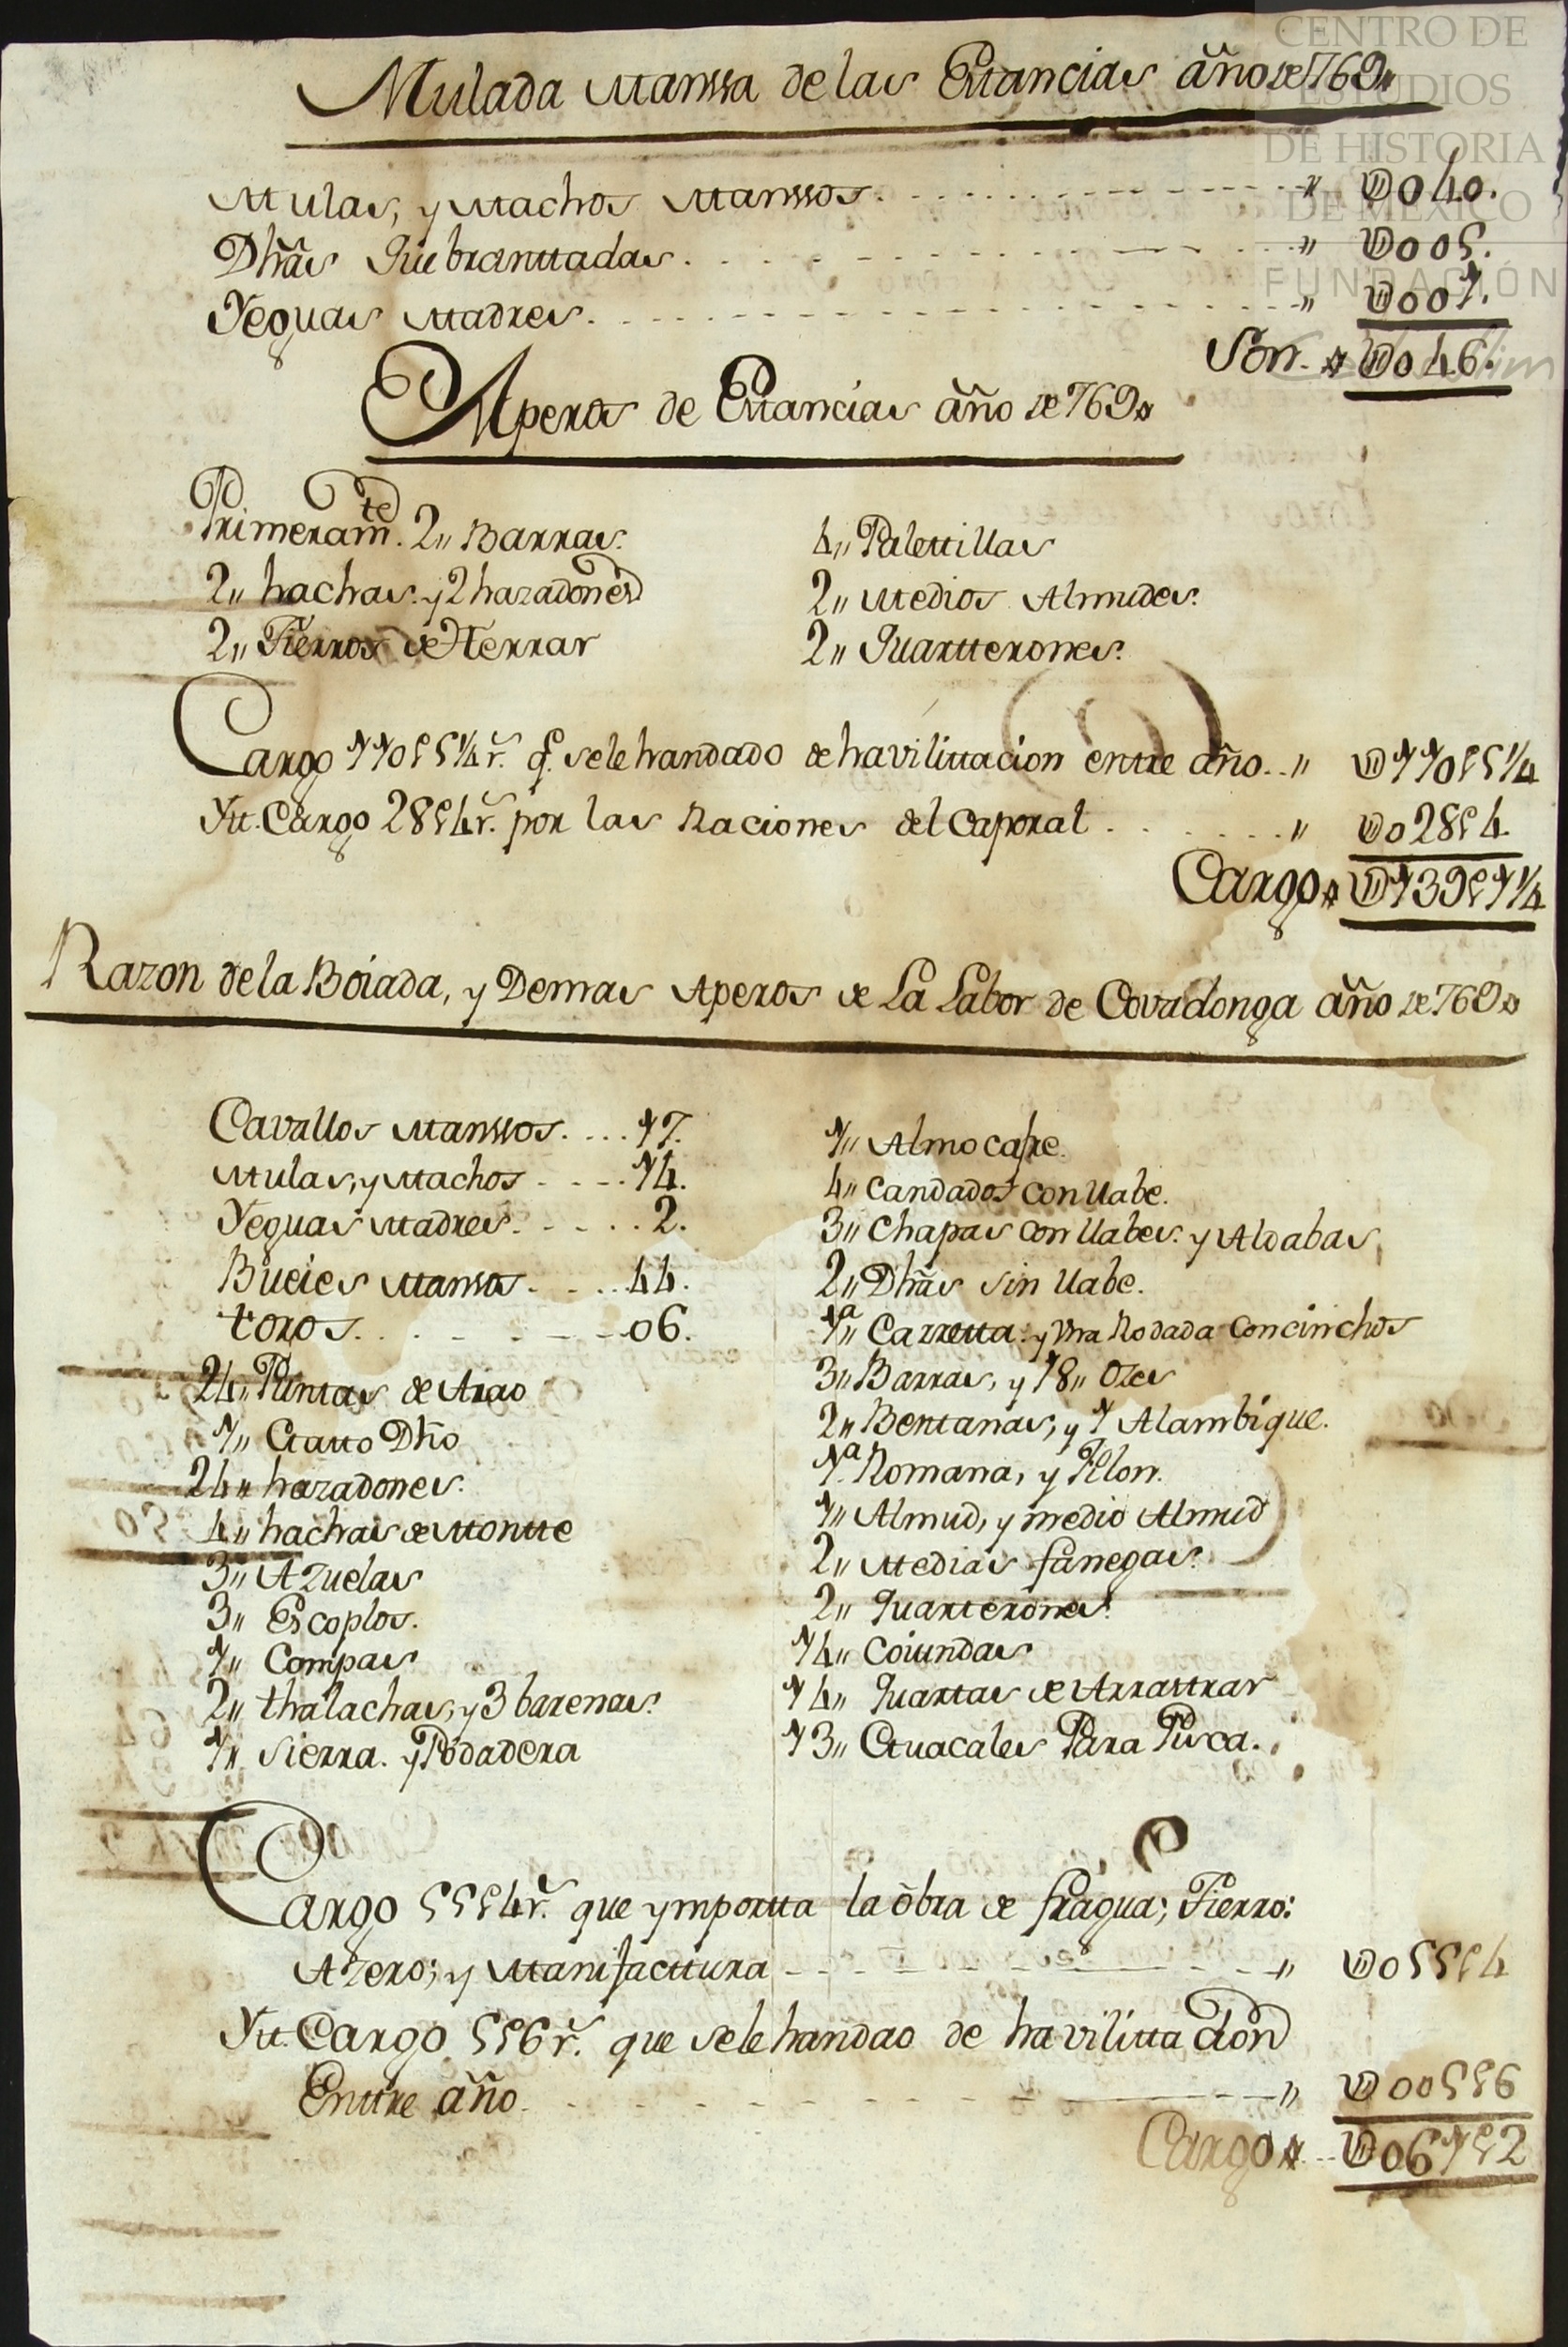 CENTRO DE
ESTUDIOS
DE HISTORIA
DE MEXICO
FUNDACIÓN
Mulada Manssa de las Estancias año de 769,,
Mulas, y Machos Manssos. " U040.
Dhãs Quebranttadas. " U005.
Yeguas Madres. " U001.
Son. U046.
Aperos de Estancias año de 769
Primeram.te 2,, Barras.
2,, hachas. y 2 hazadones
2,, Fierros de Herrar
4,, Palettillas
2,, Medios Almudes.
2,, Quartterones.
Cargo 110p5¼ r.s q.e sele handado de havilittacion entre año.. " U110p5¼
Ytt. Cargo 28p4 r.s por las Raciones del Caporal " U028p4.
Cargo U139p1¼
Razon de la Boiada, y Demas Aperos de La Labor de Covadonga año de 769
Cavallos Manssos. 17.
Mulas, y Machos 14.
Yeguas Madres. 2.
Bueies Mansos. 44.
toros. 06.
24,, Puntas de Arao
1,, Gatto Dho
24,, hazadones.
4,, hachas de Montte
3,, Azuelas
3,, Escoplos.
1,, Compas
2,, thalachas, y 3 barenas.
1,, Sierra. y Podadera
1,, Almocafre.
4,, Candados con llabe.
3,, Chapas con llabes. y Aldabas,
2,, Dhãs sin llabe.
1a,, Carretta. y Una Rodada Concinchos
3,, Barras, y 18,, Ozes
2,, Bentanas, y 1 Alambique.
1.a Romana, y Pilon.
1,, Almud, y medio Almud
2,, Medias fanegas.
2,, Quarterones.
14,, Coiundas
14,, Quartas de Arrastrar
13,, Guacales Para Pisca.
Cargo 55p4 r.s que ymportta la obra de fragua; Fierro:
Azero; y Manifacttura " U055p4
Ytt. Cargo 5p6 r.s que sele handao de havilitta cion
Enttre año. " U005p6
Cargo U061p2